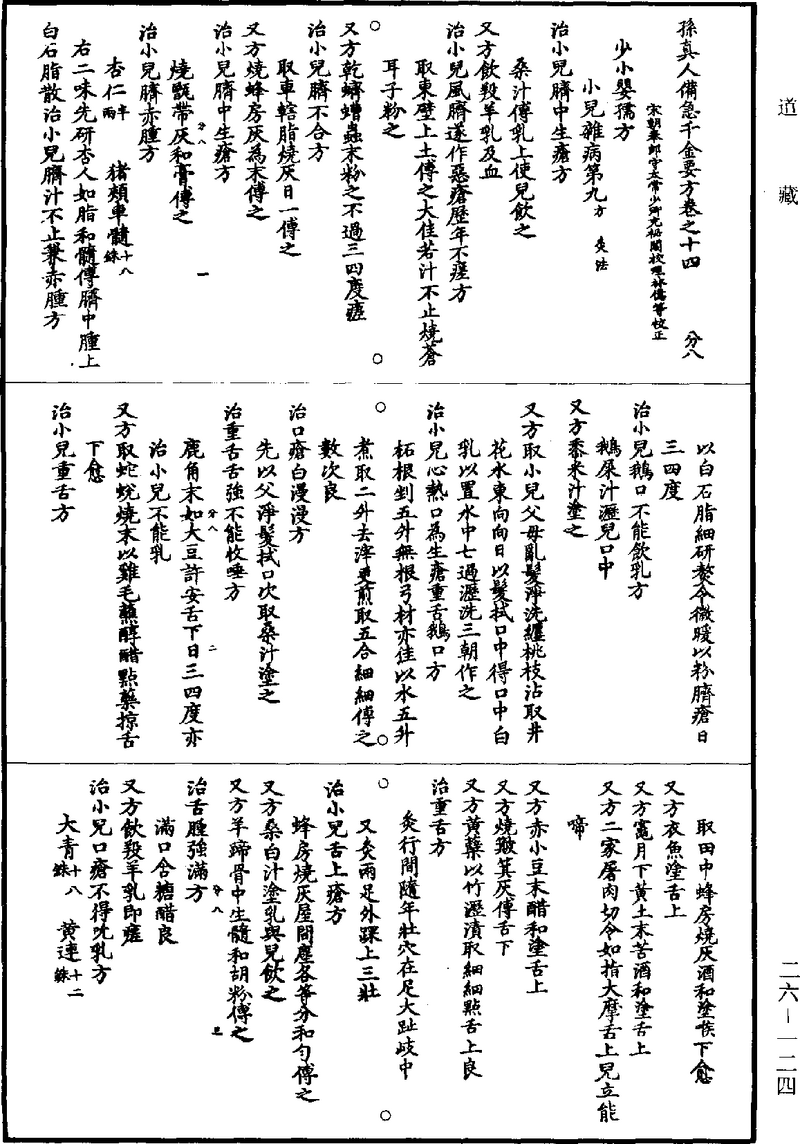 道藏
孫真人備急千金要方卷之十四 分八
宋朝奉郎守太常少卿充秘閣校理林億等校正
少小嬰孺方
小兒雜病第九 方 灸法
治小兒臍中生瘡方
桑汁傅乳上使兒飲之
又方飲羖羊乳及血
治小兒風臍遂作惡瘡歷年不瘥方
取東壁上土傅之大佳若汁不止燒蒼
耳子粉之
又方乾蠐螬蟲末粉之不過三四度瘥
治小兒臍不合方
取車轄脂燒灰日一傅之
又方燒蜂房灰為末傅之
治小兒臍中生瘡方
燒甑帶灰和膏傅之
分八 一
治小兒臍赤腫方
杏仁半兩 猪頰車髓十八銖
右二味先研杏人如脂和髓傅臍中腫上
白石脂散治小兒臍汁不止兼赤腫方
以白石脂細研熬令微暖以粉臍瘡日
三四度
治小兒鵝口不能飲乳方
鵝屎汁瀝兒口中
又方黍米汁塗之
又方取小兒父母亂髮淨洗纏桃枝沾取井
花水東向向日以髮拭口中得口中白
乳以置水中七過瀝洗三朝作之
治小兒心熱口為生瘡重舌鵝口方
柘根剉五升無根弓材亦佳以水五升
煮取二升去滓更煎取五合細細傅之
數次良
治口瘡白漫漫方
先以父淨髮拭口次取桑汁塗之
治重舌舌強不能收唾方
鹿角末如大豆許安舌下日三四度亦
分八 二
治小兒不能乳
又方取蛇蛻燒末以雞毛蘸醇醋點藥掠舌
下愈
治小兒重舌方
取田中蜂房燒灰酒和塗喉下愈
又方衣魚塗舌上
又方竈月下黃土末苦酒和塗舌上
又方二家屠肉切令如指大摩舌上兒立能
啼
又方赤小豆末醋和塗舌上
又方燒簸箕灰傅舌下
又方黃蘗以竹瀝漬取細細點舌上良
治重舌方
灸行間隨年壯穴在足大趾歧中
又灸兩足外踝上三壯
治小兒舌上瘡方
蜂房燒灰屋間塵各等分和勻傅之
又方桑白汁塗乳與兒飲之
又方羊蹄骨中生髓和胡粉傅之
分八 三
治舌腫強滿方
滿口含糖醋良
又方飲羖羊乳即瘥
治小兒口瘡不得吮乳方
大青十八銖 黃連十二銖
二六－一二四